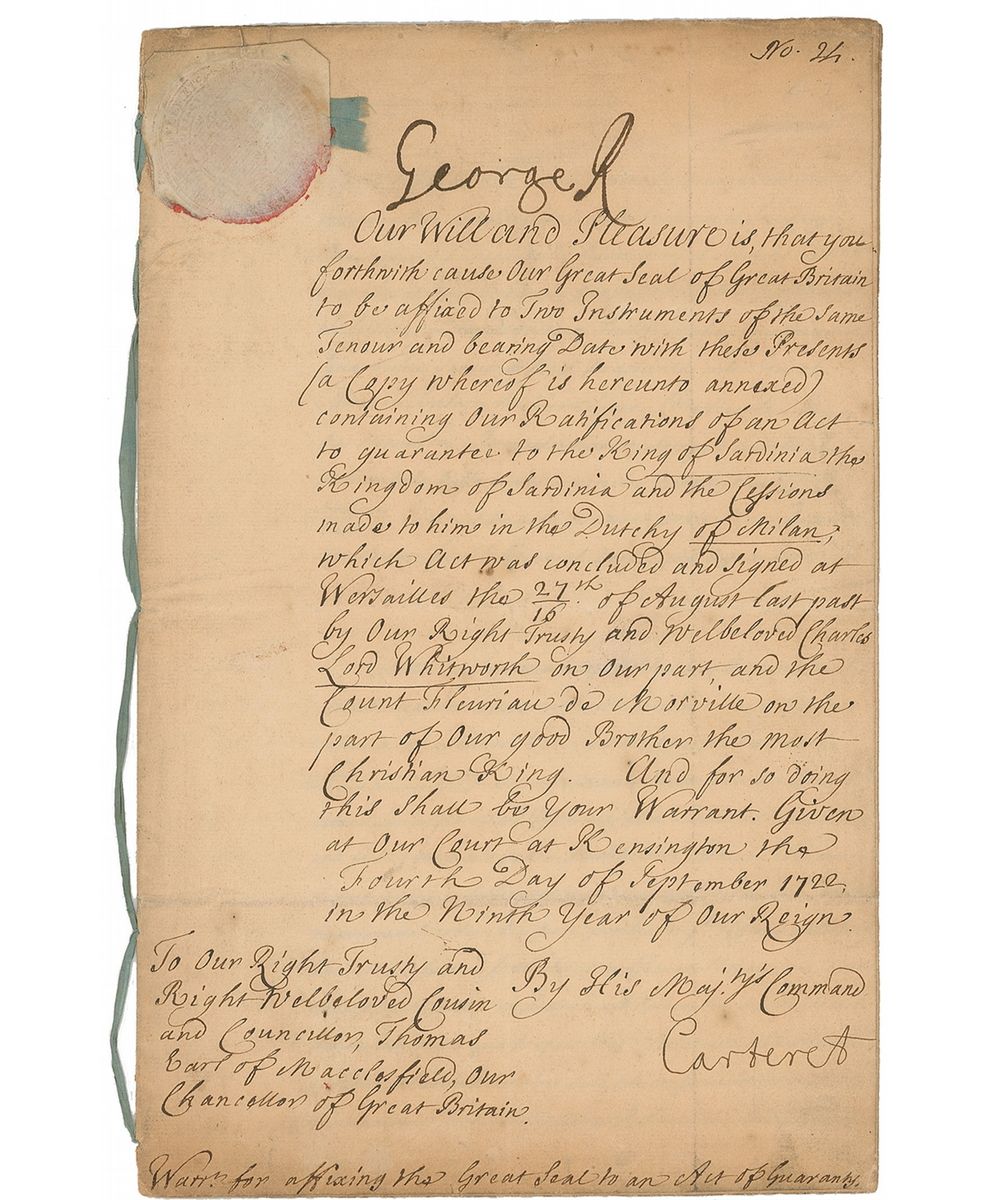 No. 24.
George R
Our Will and Pleasure is, that you
forthwith cause Our Great Seal of Great Britain
to be affixed to Two Instruments of the same
Tenour and bearing Date with these Presents
(a Copy whereof is hereunto annexed)
containing Our Ratifications of an Act
to guarantee to the King of Sardinia the
Kingdom of Sardinia and the Cessions
made to him in the Dutchy of Milan,
which Act was concluded and signed at
Versailles the 27th/16 of August last past
by Our Right Trusty and Welbeloved Charles
Lord Whitworth on Our part, and the
Count Fleuriau de Morville on the
part of Our good Brother the most
Christian King. And for so doing
this shall be Your Warrant. Given
at Our Court at Kensington the
Fourth Day of September 1722,
in the Ninth Year of Our Reign.
To Our Right Trusty and
Right Welbeloved Cousin
and Councillor, Thomas
Earl of Macclesfield, Our
Chancellor of Great Britain.
By His Maj.ty's Command
Carteret
Warrt. for affixing the Great Seal to an Act of Guaranty.